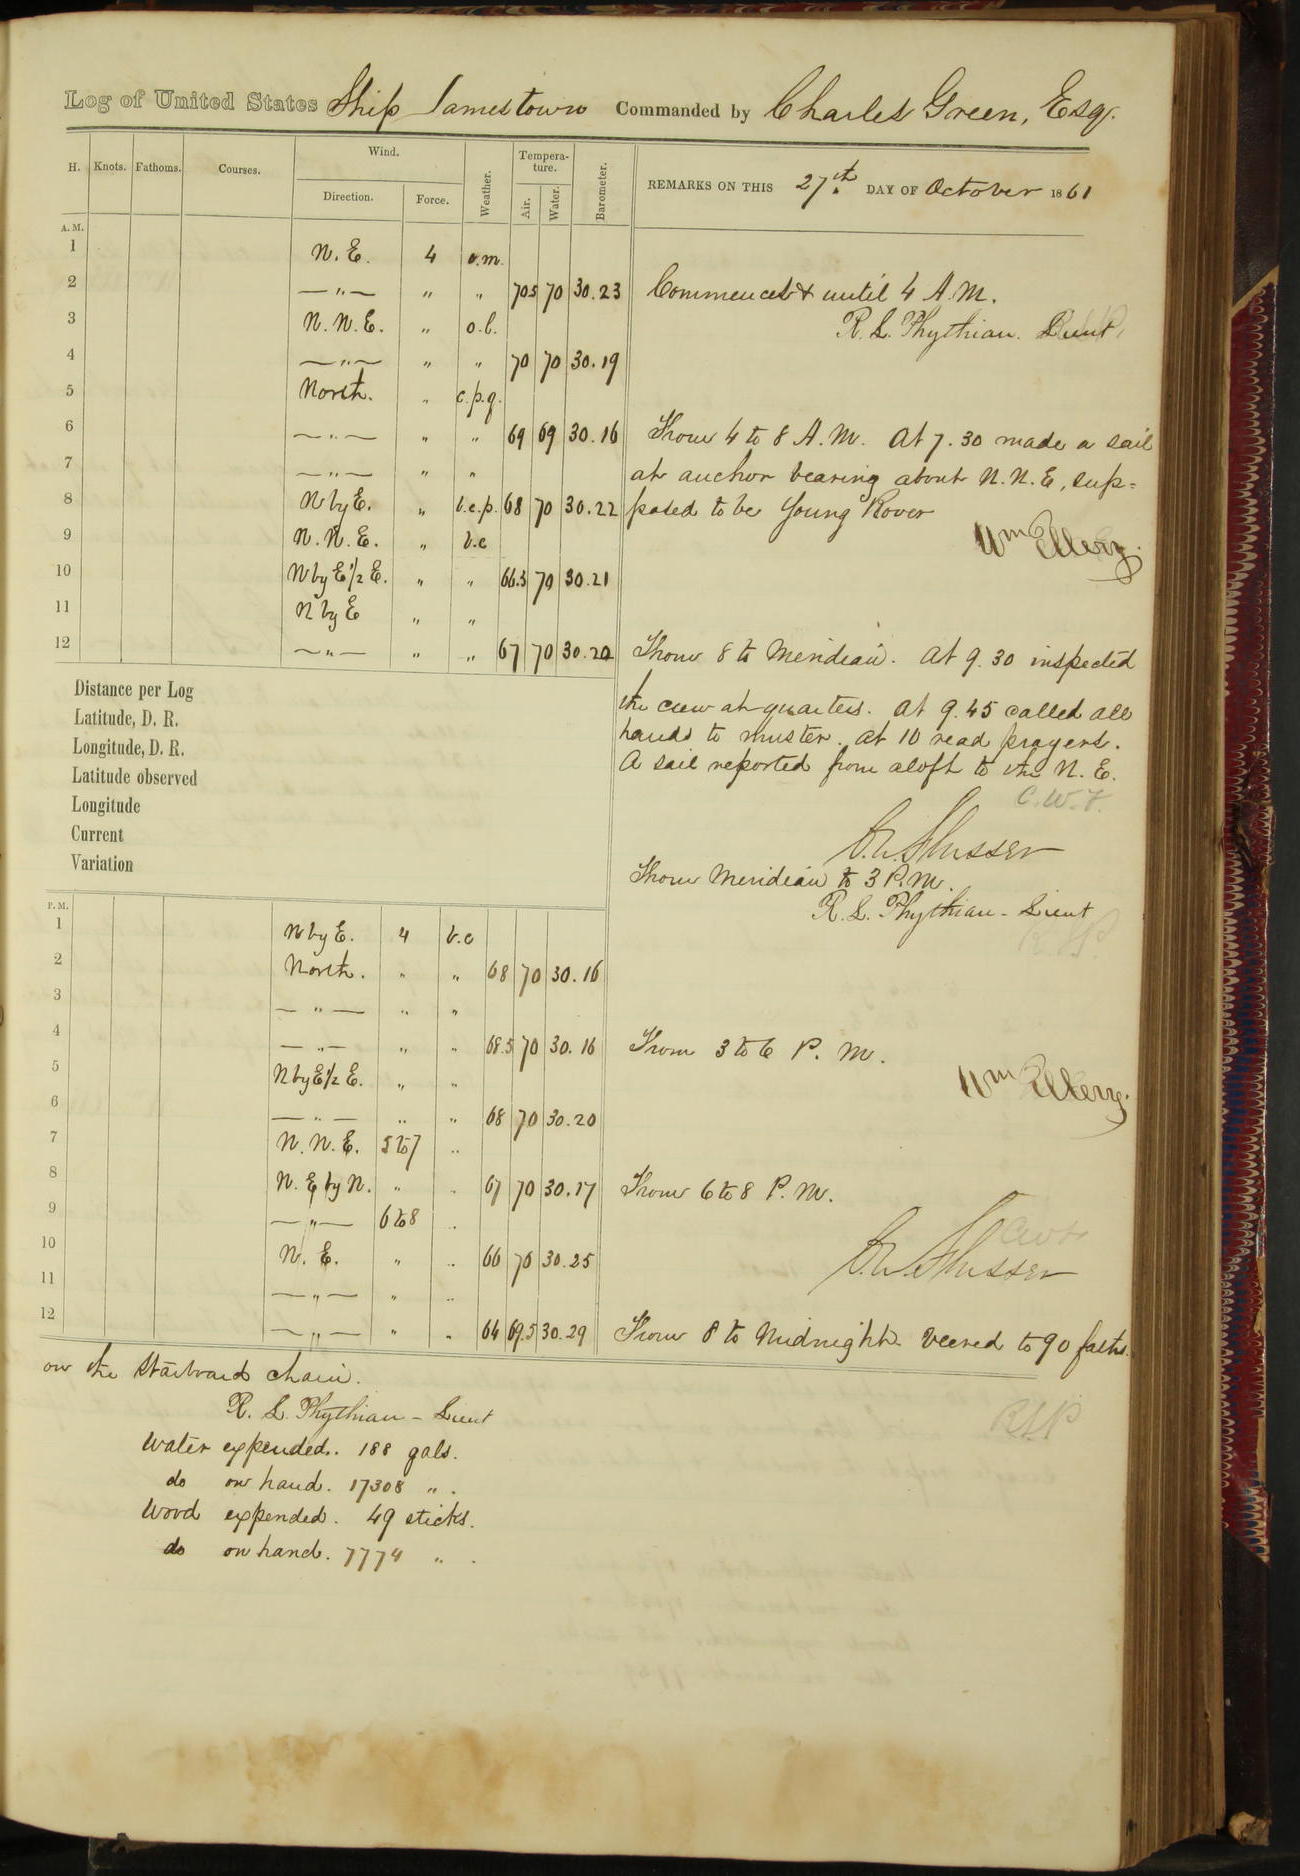 Log of United States Ship Jamestown Commanded by Charles Green, Esq.
H. Knots. Fathoms. Courses. Wind. Direction. Force. Weather. Tempera-ture. Air. Water. Barometer. REMARKS ON THIS 27th. DAY OF October 1861
A.M.
1 N. E. 4 o.m.
2 —〃— 〃 〃 70.5 70 30.23 Commences & until 4 A.M.
3 N. N. E. 〃 o.c. R. L. Phythian. Lieut
4 —〃— 〃 〃 70 70 30.19
5 North. 〃 c.p.q.
6 —〃— 〃 〃 69 69 30.16 From 4 to 8 A.M. At 7.30 made a sail
7 —〃— 〃 〃 at anchor bearing about N.N.E, sup=
8 N by E. 〃 b.c.p. 68 70 30.22 posed to be Young Rover
9 N. N. E. 〃 b.c Wm Ellery.
10 N by E 1/2 E. 〃 〃 66.5 70 30.21
11 N by E 〃 〃
12 —〃— 〃 〃 67 70 30.20 From 8 to Meridian. At 9.30 inspected
Distance per Log
Latitude, D. R.
Longitude, D. R.
Latitude observed
Longitude
Current
Variation
the crew at quarters. At 9.45 called all
hands to muster. At 10 read prayers.
A sail reported from aloft to the N. E.
C.W.F.
C.W. Flusser
From Meridian to 3 P.M.
R. L. Phythian - Lieut
P.M.
1 N by E. 4 b.c
2 North. 〃 〃 68 70 30.16
3 —〃— 〃 〃
4 —〃— 〃 〃 68.5 70 30.16 From 3 to 6 P. M.
5 N by E 1/2 E. 〃 〃 Wm Ellery.
6 —〃— 〃 〃 68 70 30.20
7 N. N. E. 5 to 7 〃
8 N. E by N. 〃 〃 67 70 30.17 From 6 to 8 P. M.
9 —〃— 6 to 8 〃
10 N. E. 〃 〃 66 70 30.25 C.W. Flusser
11 —〃— 〃 〃
12 —〃— 〃 〃 64 69.5 30.29 From 8 to Midnight. Veered to 90 faths.
on the Starboard chain.
R. L. Phythian - Lieut
RLP
Water expended. 188 gals.
do on hand. 17308 〃.
Wood expended. 49 sticks.
do on hand. 7774 〃.